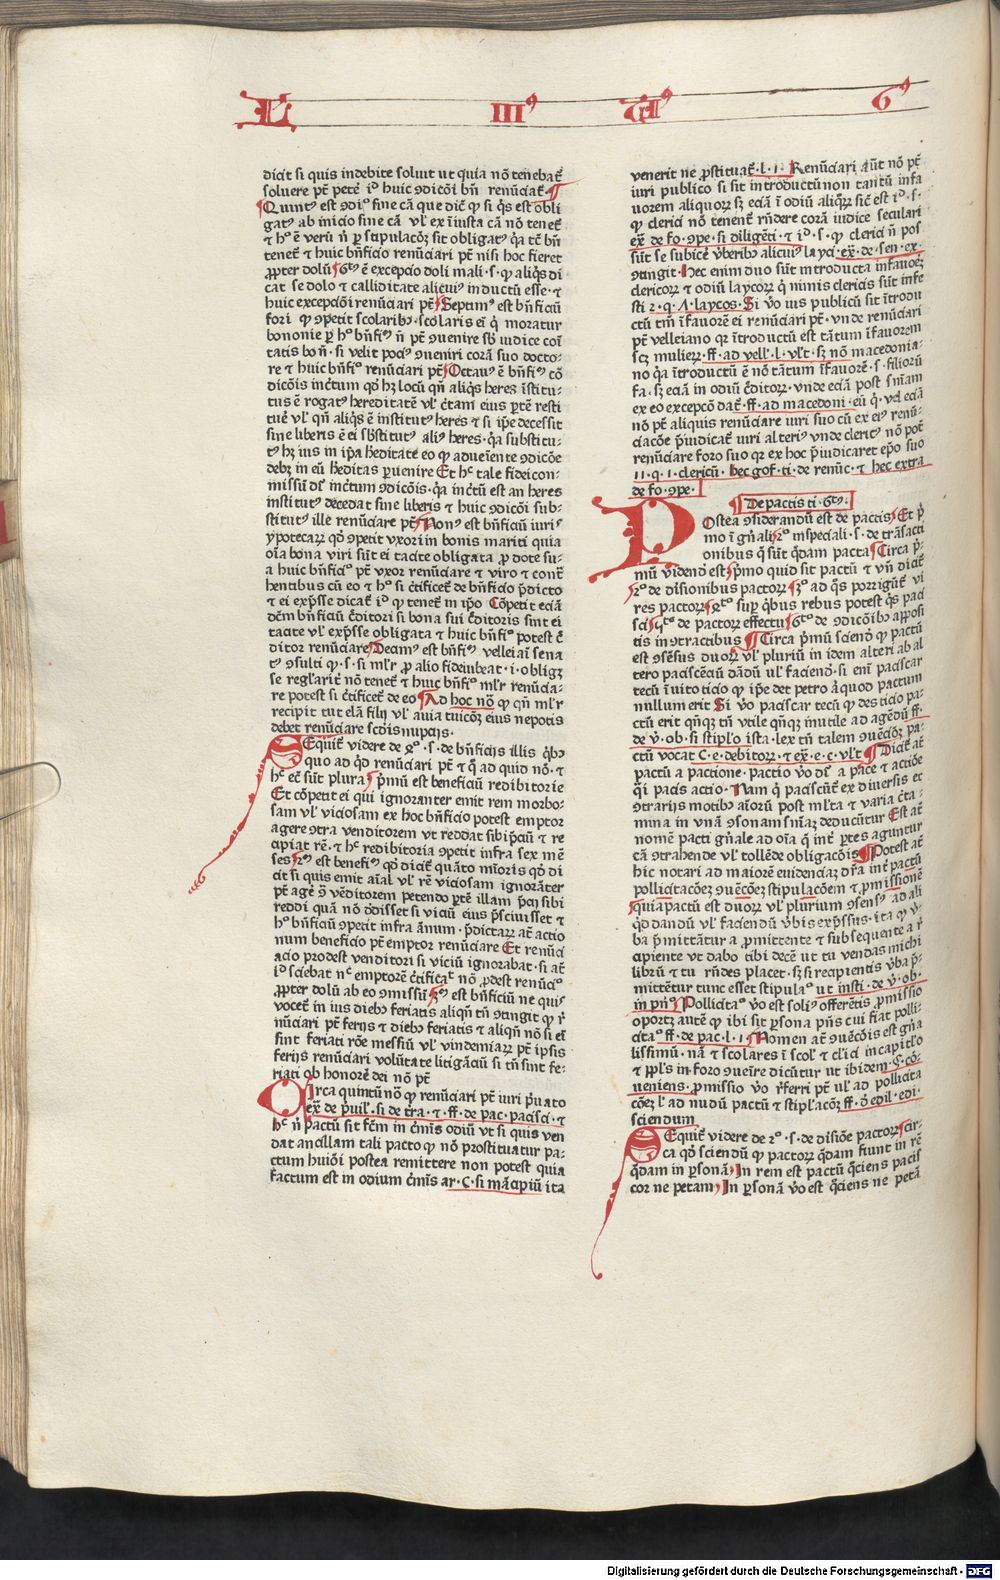 L III⁹ Ti⁹ 6⁹
dicit si quis indebite soluit ut̄ quia nō tenebat᷑
soluere pt̄ petē iᵈ huic ꝯdicōi bn̄ renūciat᷑ ¶
¶Quint⁹ est ꝯdi⁰ sine cā que dic̄t ꝙ si q̄s est obli
gat⁹ ab inicio sine cā vl̓ ex īiusta cā nō tenet᷑
⁊ h⁰ ē verū n̄ ꝑ stipulacōꝫ sit obligat⁹ q̓a tc̄ bn̄
tenet᷑ ⁊ huic bn̄ficio renūciari pt̄ nisi hoc fieret
ꝓpter dolū ¶6ᵗ⁹ ē excepcio doli mali · s · ꝙ aliq̄s di
cat se dolo ⁊ calliditate alicui⁹ inductū esse · ⁊
huic excepcōi renūciari pt̄ ¶Septim⁹ est bn̄ficiū
fori ꝙ ꝯpetit scolarib⁹ · scolaris eī q̄ moratur
bononie ꝑ h⁰ bn̄fi⁹ n̄ pt̄ ꝯuenire sb̄ iudice coī
tatis bon̄ · si velit poci⁹ ꝯueniri corā suo docto⸗
re ⁊ huic bn̄fi⁰ renūciari pt̄ ¶Octau⁹ ē bn̄fi⁹ cō
dicōis inc̄tum qd̄ hꝫ locū qn̄ aliq̄s heres īstitu⸗
tus ē rogat⁹ hereditatē vl̓ c̄tam eius ꝑtē resti
tue᷑ vl̓ qn̄ aliq̄s ē institut⁹ heres ⁊ si ip̄e decessit
sine liberis ē ei sb̄stitut⁹ ali⁹ heres · q̓a substitu⸗
t⁹ hꝫ ius in ip̄a h̄editate eo ꝙ adueīente ꝯdicōe
debꝫ in eū h̄editas ꝑuenire Et hᶜ tale fideicon⸗
missū ds̄ inc̄tum ꝯdicōis · q̓a inc̄tū est an heres
institut⁹ decedat sine liberis ⁊ huic ꝯdicōi sub⸗
stitut⁹ ille renūciare pt̄ ¶Non⁹ est bn̄ficiū iuri⁹
ypotecarꝫ qd̄ ꝯpetit vxori in bonis mariti quia
oīa bona viri sūt ei tacite obligata ꝓ dote su⸗
a huic bn̄fici⁰ pt̄ vxor renūciare ⁊ viro ⁊ cont᷑
hentibus cū eo ⁊ h⁰ si c̄tificet᷑ de bn̄ficio p̄dicto
⁊ ei exp̄sse dicat᷑ iᵈ ꝙ tenet᷑ in ip̄o Cōpetit eciā
dc̄m bn̄ficiū c̄ditori si bona sui c̄ditoris sint ei
tacite vl̓ exp̄sse obligata ⁊ huic bn̄fi⁰ potest c̄
ditor renūciare ¶Decim⁹ est bn̄fi⁹ velleiaī sena
t⁹ ꝯsulti ꝙ · s · si ml̓r ꝓ alio fideiubeat · i · obligꝫ
se reglaritͭ nō tenet᷑ ⁊ huic bn̄fi⁰ ml̓r renūcia⸗
re potest si c̄tificet᷑ de eo ¶Ad hoc nō ꝙ qn̄ ml̓r
recipit tut elā filij vl̓ auia tuicōꝫ eius nepotis
debet renūciare scd̓is nupcijs ·
SEquit᷑ videre de 2⁰ · s · de bn̄ficijs illis q̄b⁹
quo ad qd̄ renūciari pt̄ ⁊ q̄ ad quid nō · ⁊
hᶜ ec̄ sūt plura ¶p̄mū est beneficiū redibitorie
Et cōpetit ei qui ignoranter emit rem morbo⸗
sam vl̓ viciosam ex hoc bn̄ficio potest emptor
agere ꝯtra venditorem vt reddat sibi p̄ciū ⁊ re
cipiat rē · ⁊ hᶜ redibitoria ꝯpetit infra sex mē
ses ¶2ᵐ est benefi⁹ qd̄ dicit᷑ quāto mīoris qd̄ di
cit si quis emit aīal vl̓ rē viciosam ignorāter
pt̄ age᷑ ꝯ vēditorem petendo ꝑtē illam p̄cij sibi
reddi quā nō d̄disset si viciū eius p̄sciuisset ⁊
h⁰ bn̄ficiū ꝯpetit infra ānum · p̄dictarꝫ at̄ actio
num beneficio pt̄ emptor renūciare Et renūci
acio prodest venditori si viciū ignorabat · si at̄
iᵈ sciebat nᶜ emptorē c̄tificat nō ꝓdest renūci⁰
ꝓpter dolū ab eo ꝯmissū ¶3ᵐ est bn̄ficiū ne quis
vocet᷑ in ius dieb⁹ feriatis aliqn̄ tn̄ ꝯtingit ꝙ r᷑
nūciari pt̄ ferijs ⁊ dieb⁹ feriatis ⁊ aliqn̄ nō si eī
sint feriati rōe messiū vl̓ vindemiarꝫ pt̄ ipsis
ferijs renūciari volūtate litigāciū si tn̄ sint fe⸗
riati ob honorē dei nō pt̄
CIrca quintū nō ꝙ renūciari pt̄ iuri p̄uato
ex̄ de p̄uil̓ · si de tr̄a · ⁊ ff · de pac · pacisci · ⁊
hᶜ n̄ pactū sit fc̄m in c̄mīs odiū vt si quis ven
dat ancillam tali pacto ꝙ nō prostituatur pa⸗
ctum huiōi postea remittere non potest quia
factum est in odium c̄mīs ar · C · si mācipiū ita
venerit ne ꝓstituat᷑ · l · 1 · Renūciari aūt nō pt̄
iuri publico si sit introductū non tantū infa
uorem aliquorꝫ sꝫ eciā ī odiū aliq̄rꝫ sic̄ est iᵈ · s ·
ꝙ clerici nō tenent᷑ rn̄dere corā iudice seculari
ex̄ de fo · ꝯpe · si diligēti · ⁊ iᵈ · s · ꝙ clerici n̄ pos
sūt se subice᷑ v̄berib⁹ alicui⁹ layci · ex̄ · de · sen · ex ·
ꝯtingit · Hec enim duo sūt introducta infauorꝫ
clericorꝫ ⁊ odiū laycorꝫ q̄ nimis clericis sūt infe
sti 2 · q · Λ · laycos · Si v̄o ius publicū sit ītrodu
ctū tm̄ īfauorē ei renūciari pt̄ · vnde renūciari
pt̄ velleiano qr̄ ītroductū est tātum īfauorem
scꝫ mulierꝫ · ff · ad vell̓ · l · vl̓t · sꝫ nō macedonia⸗
no q̓a ītroductū ē nō tātum īfauorē · s · filiorū
fa · sꝫ eciā in odiū c̄ditorꝫ · vnde eciā post sn̄iam
ex eo excepcō dat᷑ · ff · ad macedoni · eū q̄ · vel eciā
nō pt̄ aliquis renūciare iuri suo cū ex ei⁹ renū⸗
ciacōe p̄iudicat᷑ iuri alteri⁹ vnde cleric⁹ nō pōt
renūciare foro suo qr̄ ex hoc p̄iudicaret ep̄o suo
11 · q · 1 · clericū · hec gof · ti · de renūc · ⁊ hec extra
de fo · ꝯpe ·
¶De pactis ti · 6ᵗ⁹ ·
POstea ꝯsiderandū est de pactis ¶Et p̄
mo ī gn̄ali ¶2⁰ inspeciali · s · de trāsacti
onibus q̄ sūt q̄dam pacta ¶Circa p̄⸗
mū vidend̄ est ¶p̄mo quid sit pactū ⁊ vn̄ dicat᷑
¶2⁰ de diu̓sionibus pactorꝫ ¶3⁰ ad q̄s porrigūt᷑ vi
res pactorꝫ ¶4ᵗ⁰ sup̄ q̄bus rebus potest q̄s paci
sci ¶5ᵗ⁰ de pactorꝫ effectu ¶6ᵗ⁰ de ꝯdicōib⁹ apposi
tis in ꝯtractibus ¶Circa p̄mū sciend̄ ꝙ pactū
est ꝯsēsus duorꝫ vl̓ pluriū in idem alteri ab al
tero paciscēciū dādū vl̓ faciend̄ · si enī paciscar
tecū īuito ticio ꝙ ip̄e det petro aꝉquod pactum
nullum erit Si v̄o paciscar tecū ꝙ des ticio pa⸗
ctū erit qn̄qꝫ tn̄ vtile qn̄qꝫ inutile ad agēdū ff ·
de v̄ · ob · si stipl̓o ista · lex tn̄ talem ꝯuēcōꝫ pa⸗
ctū vocat C · e · debitorꝫ · ⁊ ex̄ · e · c · vl̓t ¶Dicit᷑ at̄
pactū a pactione · pactio v̄o ds̄ a pace ⁊ actiōe
q̄i pacis actio · Nam q̄ paciscūt᷑ ex diuersis et
ꝯtrarijs motib⁹ aīorū post ml̓ta ⁊ varia c̄ta⸗
mina in vnā ꝯsonam sn̄iaꝫ deducūtur Est at̄
nomē pacti gn̄ale ad oīa q̄ int᷑ ꝑtes aguntur
cā ꝯtrahende vl̓ tollēde obligacōis ¶Potest at̄
hic notari ad maiorē euidenciaꝫ dr̄a int᷑ pactū
pollicitacōeꝫ ꝯuēcōeꝫ stipulacōem ⁊ ꝓmissionē
¶quia pactū est duorꝫ vl̓ plurium ꝯsens⁹ ad ali
qd̄ dandū vl̓ faciendū v̄bis exp̄ssus · ita ꝙ v᷑⸗
ba p̄mittātur a ꝓmittente ⁊ subsequente a r᷑
cipiente vt dabo tibi decē ut tu vendas michi
librū ⁊ tu rn̄des placet · sꝫ si recipientis v̄ba p̄⸗
mittētur tunc esset stipula⁰ ut insti · de v̄ · ob ·
in pn̄⁰ ¶Pollicita⁰ v̄o est soli⁹ offerētis ꝓmissio
oportꝫ autē ꝙ ibi sit ꝑsona pn̄s cui fiat polli⸗
cita⁰ ff · de pac · l · 1 · ¶Nomen at̄ ꝯuēcōis est gn̄a
lissimū · nā ⁊ scolares ī scol̓ ⁊ cl̓ici in capitl̓o
⁊ ppl̓s in foro ꝯueīre dicūtur ut ibidem · C · cō⸗
ueniens · ꝓmissio v̄o r᷑ferri pt̄ ul̓ ad pollicita
cōeꝫ l̓ ad nudū pactū ⁊ stipl̓acōꝫ ff · ꝺ edil · edi ·
sciendum
SEquit᷑ videre de 2⁰ · s · de diu̓siōe pactorꝫ ¶cir⸗
ca qd̄ sciendū ꝙ pactorꝫ q̄dam fiunt in rē
q̄dam in ꝑsonā ¶In rem est pactū q̄ciens pacis
cor ne petam ¶In ꝑsonā v̄o est q̄ciens ne petā
Digitalisierung gefördert durch die Deutsche Forschungsgemeinschaft - DFG